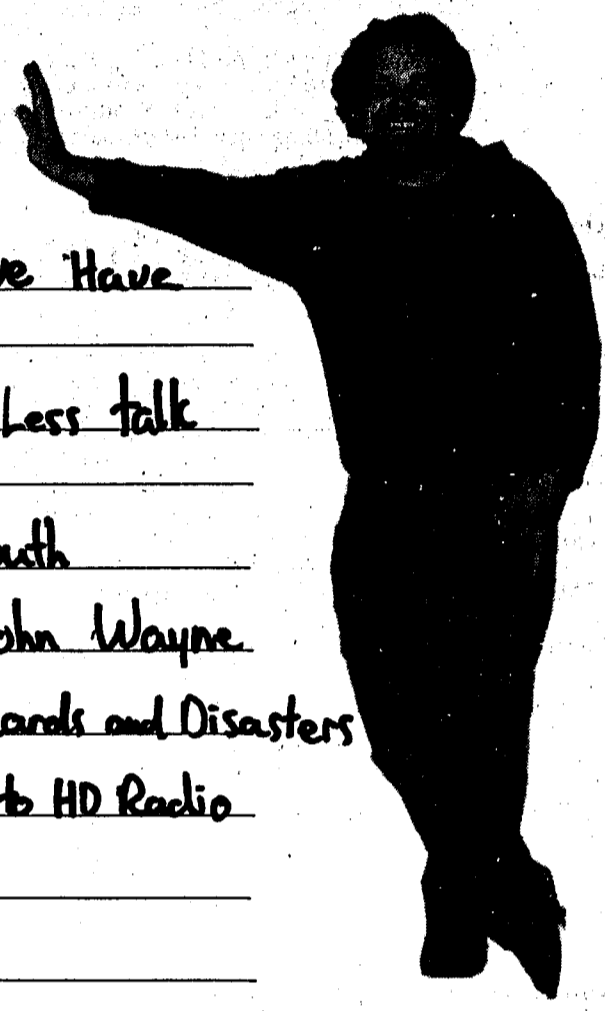 ve Have
Less talk
outh
ohn Wayne
ards and Disasters
to HD Radio